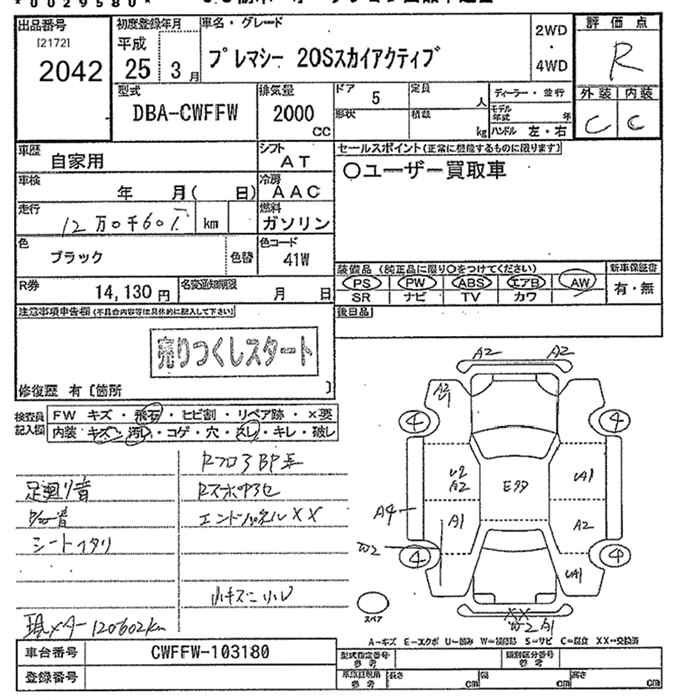 出品番号
[2172]
2042
初度登録年月
平成
25 3月
車名・グレード
プレマシー 20Sスカイアクティブ
2WD
・
4WD
評価点
R
外装 内装
C C
型式
DBA-CWFFW
排気量
2000
CC
ドア 5
形状
定員 人
積載 kg
ディーラー・並行
モデル年式 年
ハンドル 左・右
車歴
自家用
シフト
AT
車検
年 月( 日)
冷房
AAC
走行
12万0千60 km
燃料
ガソリン
色
ブラック
色替
色コード
41W
R券
14,130円
名変通知期限
月 日
セールスポイント(正常に機能するものに限ります)
○ユーザー買取車
装備品(純正品に限り○をつけてください)
PS PW ABS エアB AW
SR ナビ TV カワ
新車保証書
有・無
後日品
注意事項申告欄(不具合内容等は具体的に記入して下さい)
売りつくしスタート
修復歴 有〔箇所 〕
検査員
記入欄
FW キズ・飛石・ヒビ割・リペア跡・×要
内装 キズ・汚レ・コゲ・穴・スレ・キレ・破レ
足廻り音
シートイタリ
小キズ 小凹
現メーター120602km
A2 A2
A2
U1
4 4
U2
A2
Eクタ
UA1
A4
A1
A2
W2
4 4
UA1
XX
W2 A1
スペア
A=キズ E=エクボ U=凹み W=補修跡 S=サビ C=腐食 XX=交換済
車台番号
CWFFW-103180
登録番号
型式指定番号
参考
類別区分番号
参考
参考
長さ cm
幅 cm
高さ cm